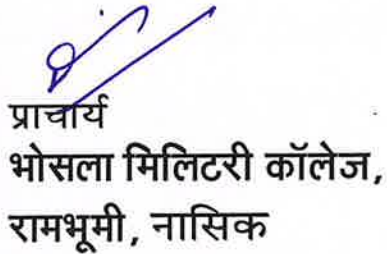 प्राचार्य
भोसला मिलिटरी कॉलेज,
रामभूमी, नासिक